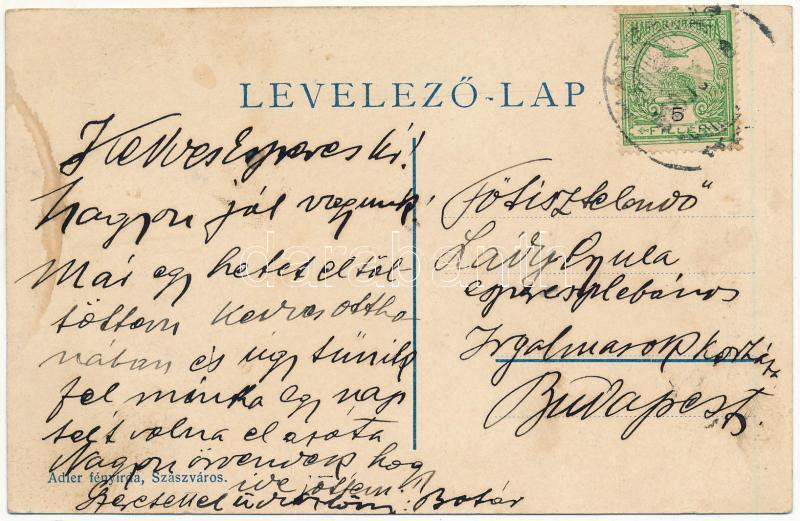 LEVELEZŐ-LAP
MAGYAR KIR. POSTA
5
FILLÉR
Kedves Esperes úr!
Nagyon jól vagyunk!
Már egy hetet eltöl-
töttem kedves ottho-
nában és úgy tűnik
fel mintha egy nap
telt volna el azóta
Nagyon örvendek hogy
ide jöttem!
Szeretettel üdvözlöm: Botár
Főtisztelendő
Gyula
esperesplébános
Irgalmasok kórháza
Budapest
Adler fényirda, Szászváros.
darabanth